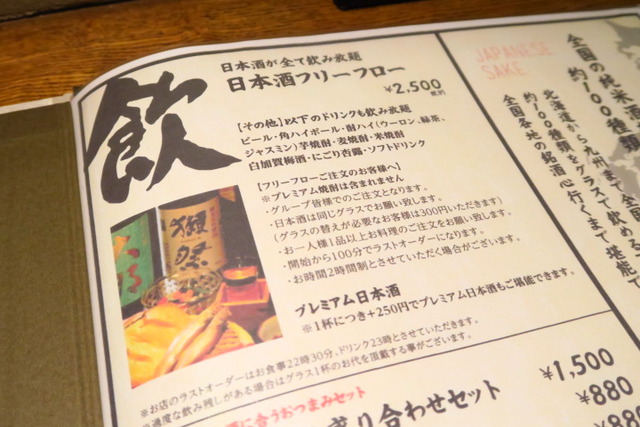 飲
日本酒が全て飲み放題
日本酒フリーフロー
¥2,500
税抜
【その他】以下のドリンクも飲み放題
ビール・角ハイボール・酎ハイ(ウーロン、緑茶、
ジャスミン)芋焼酎・麦焼酎・米焼酎
白加賀梅酒・にごり杏露・ソフトドリンク
【フリーフローご注文のお客様へ】
※プレミアム焼酎は含まれません
・グループ皆様でのご注文となります。
・日本酒は同じグラスでお願い致します。
(グラスの替えが必要なお客様は300円いただきます)
・お一人様1品以上お料理のご注文をお願い致します。
・開始から100分でラストオーダーになります。
・お時間2時間制とさせていただく場合がございます。
獺祭
プレミアム日本酒
※1杯につき+250円でプレミアム日本酒もご堪能できます。
※お店のラストオーダーはお食事22時30分、ドリンク23時とさせていただきます。
※過度な飲み残しがある場合はグラス1杯のお代を頂戴する事がございます。
JAPANESE
SAKE
全国の純米酒
約100種類
北海道から九州まで全国
約100種類をグラスで飲める
全国各地の銘酒心行くまで堪能
に合うおつまみセット
り合わせセット
¥1,500
¥880